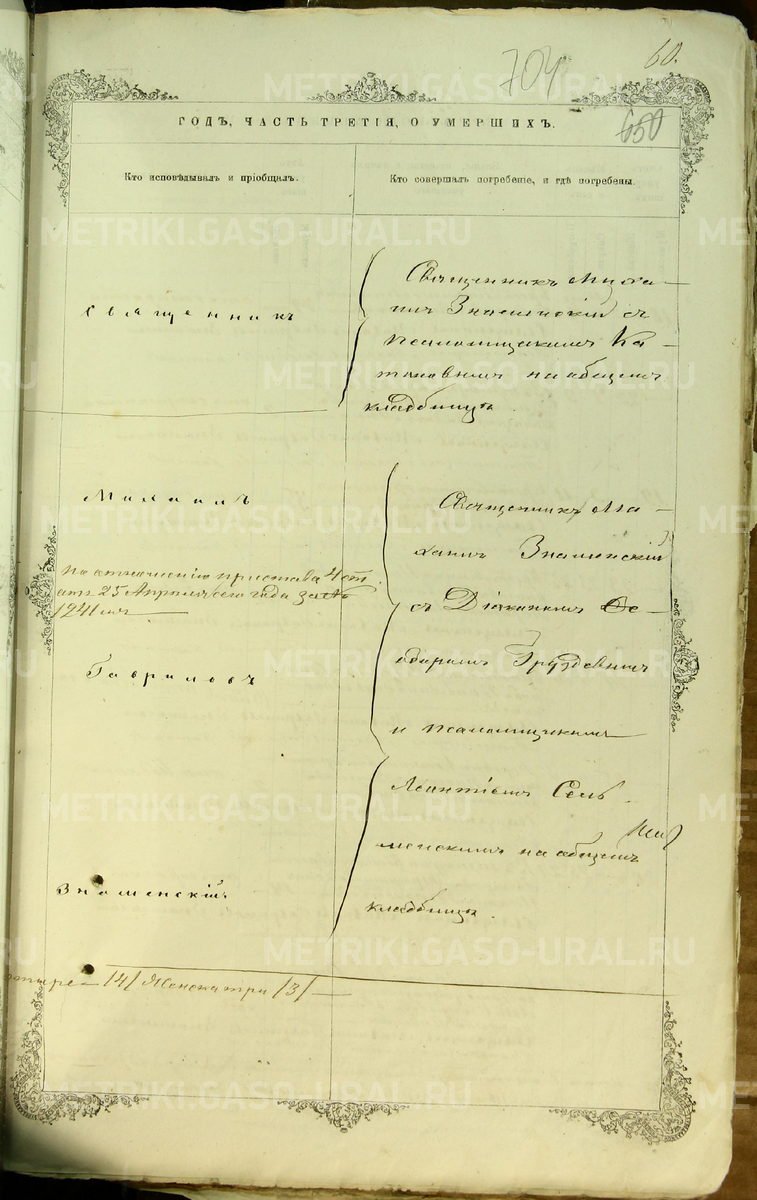 704
60.
650
ГОДЪ, ЧАСТЬ ТРЕТІЯ, О УМЕРШИХЪ.
Кто исповѣдывалъ и пріобщалъ.
Кто совершалъ погребеніе, и гдѣ погребены.
Священникъ
Священникъ
Знаменскій съ
псаломщикомъ Ка-
на общемъ
кладбищѣ.
Михаилъ
Священникъ Ми-
хаилъ Знаменскій
По отношенію пристава 4 ст.
отъ 25 Апрѣля сего года за №
1241мъ
съ Діакономъ Ѳе-
одоромъ Груздевымъ
Гавриловъ
и псаломщикомъ
Леонтіемъ Сель-
менскимъ на общемъ
кладбищѣ.
Знаменскій
четыре /4/ Женска три /3/
METRIKI.GASO-URAL.RU